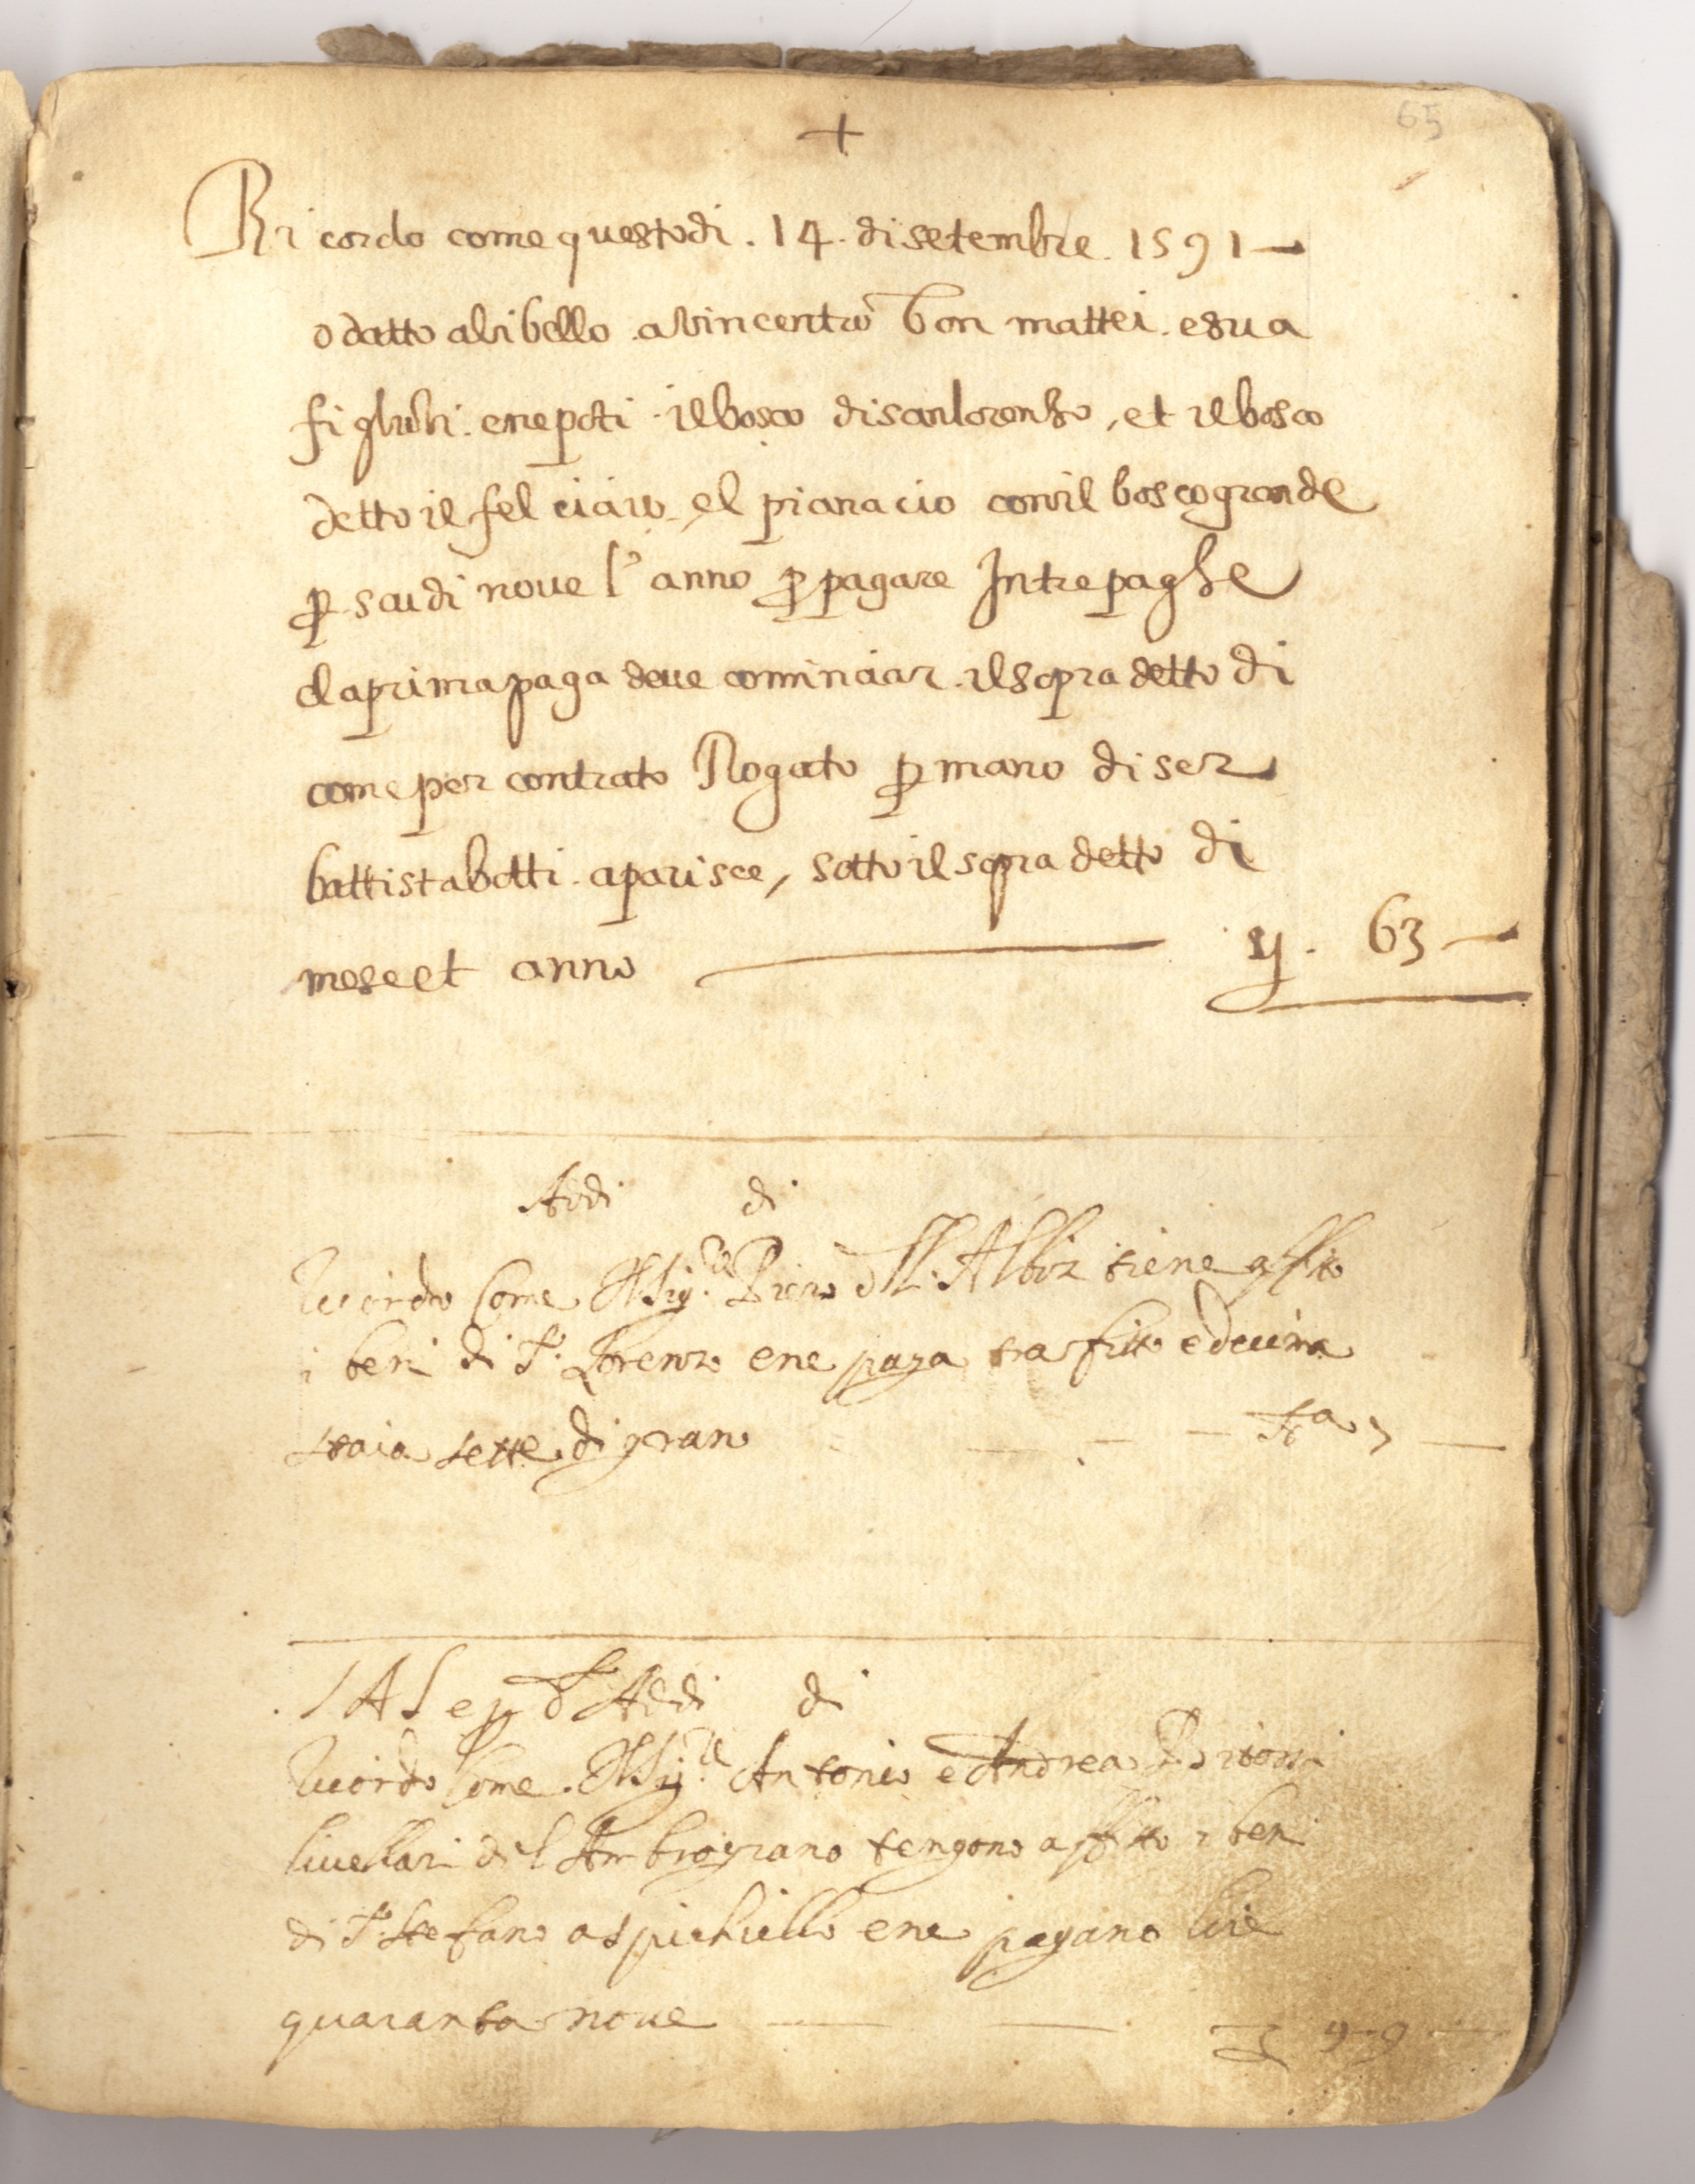 65
+
Ricordo come questo di . 14 . di setembre . 1591 —
o datto a livello . a vincentio bon mattei . e sua
figluoli . e nepoti . il bosco di san lorenzo , et il bosco
detto il felciaio el pianacio con il bosco grande
p scudi nove l' anno p pagare In tre paghe
e la prima paga deve cominciar . il sopra detto di
come per contrato Rogato p mano di ser
battista botti . aparisce , sotto il sopra detto di
mese et anno — 63 —
Adi di
Ricordo Come Il Sig.re Piero dll. Albiz tiene affitto
i beni di S. Lorenzo e ne paga tra fitto e decima
staia sette di grano — — — Sta 7 —
Adi di
Ricordo Come Antonio e Andrea
livellari del Ambrogiano tengono affitto i beni
di S. Stefano a spichiello e ne pagano lire
quaranta nove — — 49 —